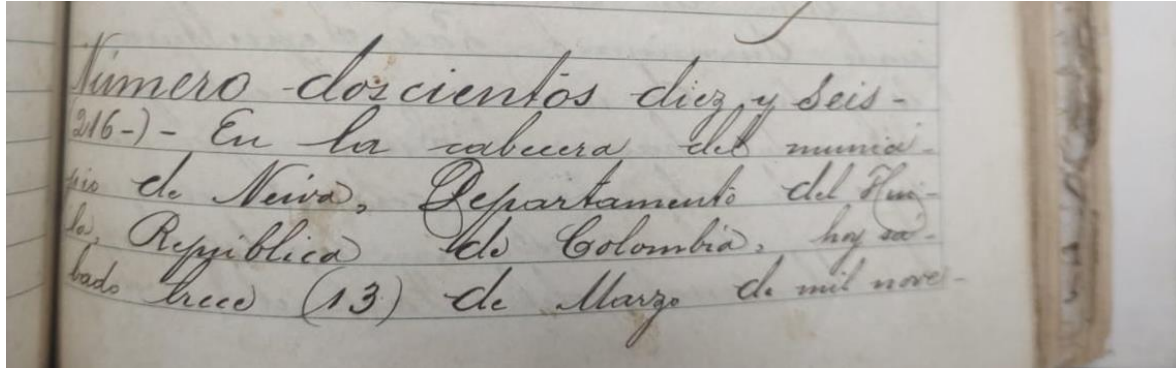 Número doscientos diez y seis-
(216-)- En la cabecera del munici-
pio de Neiva, Departamento del Hui-
la, República de Colombia, hoy sá-
bado trece (13) de Marzo de mil nove-